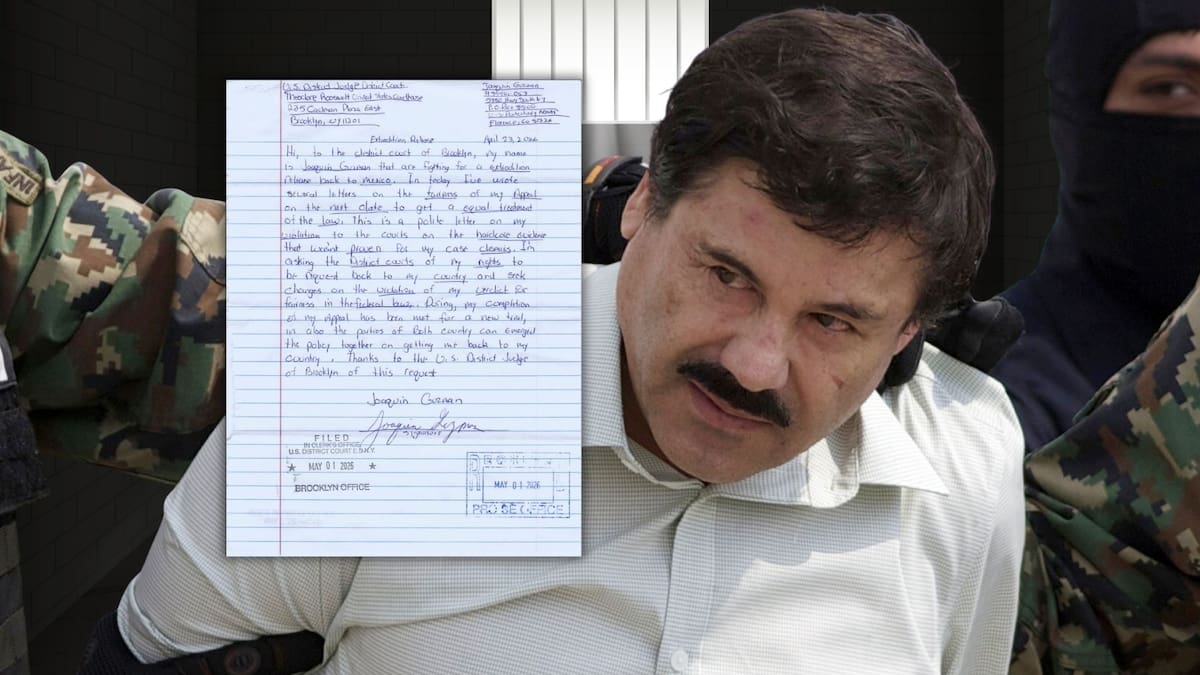 U.S. District Judge District Court
Theodore Roosevelt United States Courthouse
225 Cadman Plaza East
Brooklyn, NY 11201
Joaquin Guzman
P.O. Box 8500
Florence, CO 81226
Extradition Release
April 23, 2026
Hi, to the district court of Brooklyn, my name
is Joaquin Guzman that are fighting for a extradition
release back to Mexico. In today I've wrote
several letters on the fairness of my Appeal
on the next date to get a equal treatment
of the law. This is a polite letter on my
violation to the courts on the hardcore evidence
that wasn't proven for my case
asking the District courts of my rights to
be back to my country and seek
changes on the violation of my verdict for
fairness in the federal law. my completion
of my Appeal has been met for a new trial,
in also the parties of Both country can
the policy together on getting me back to my
country. Thanks to the U.S. District Judge
of Brooklyn of this request
Joaquin Guzman
signature
FILED
IN CLERK'S OFFICE
U.S. DISTRICT COURT E.D.N.Y.
★ MAY 01 2026 ★
BROOKLYN OFFICE
MAY 01 2026
PRO SE OFFICE
INF